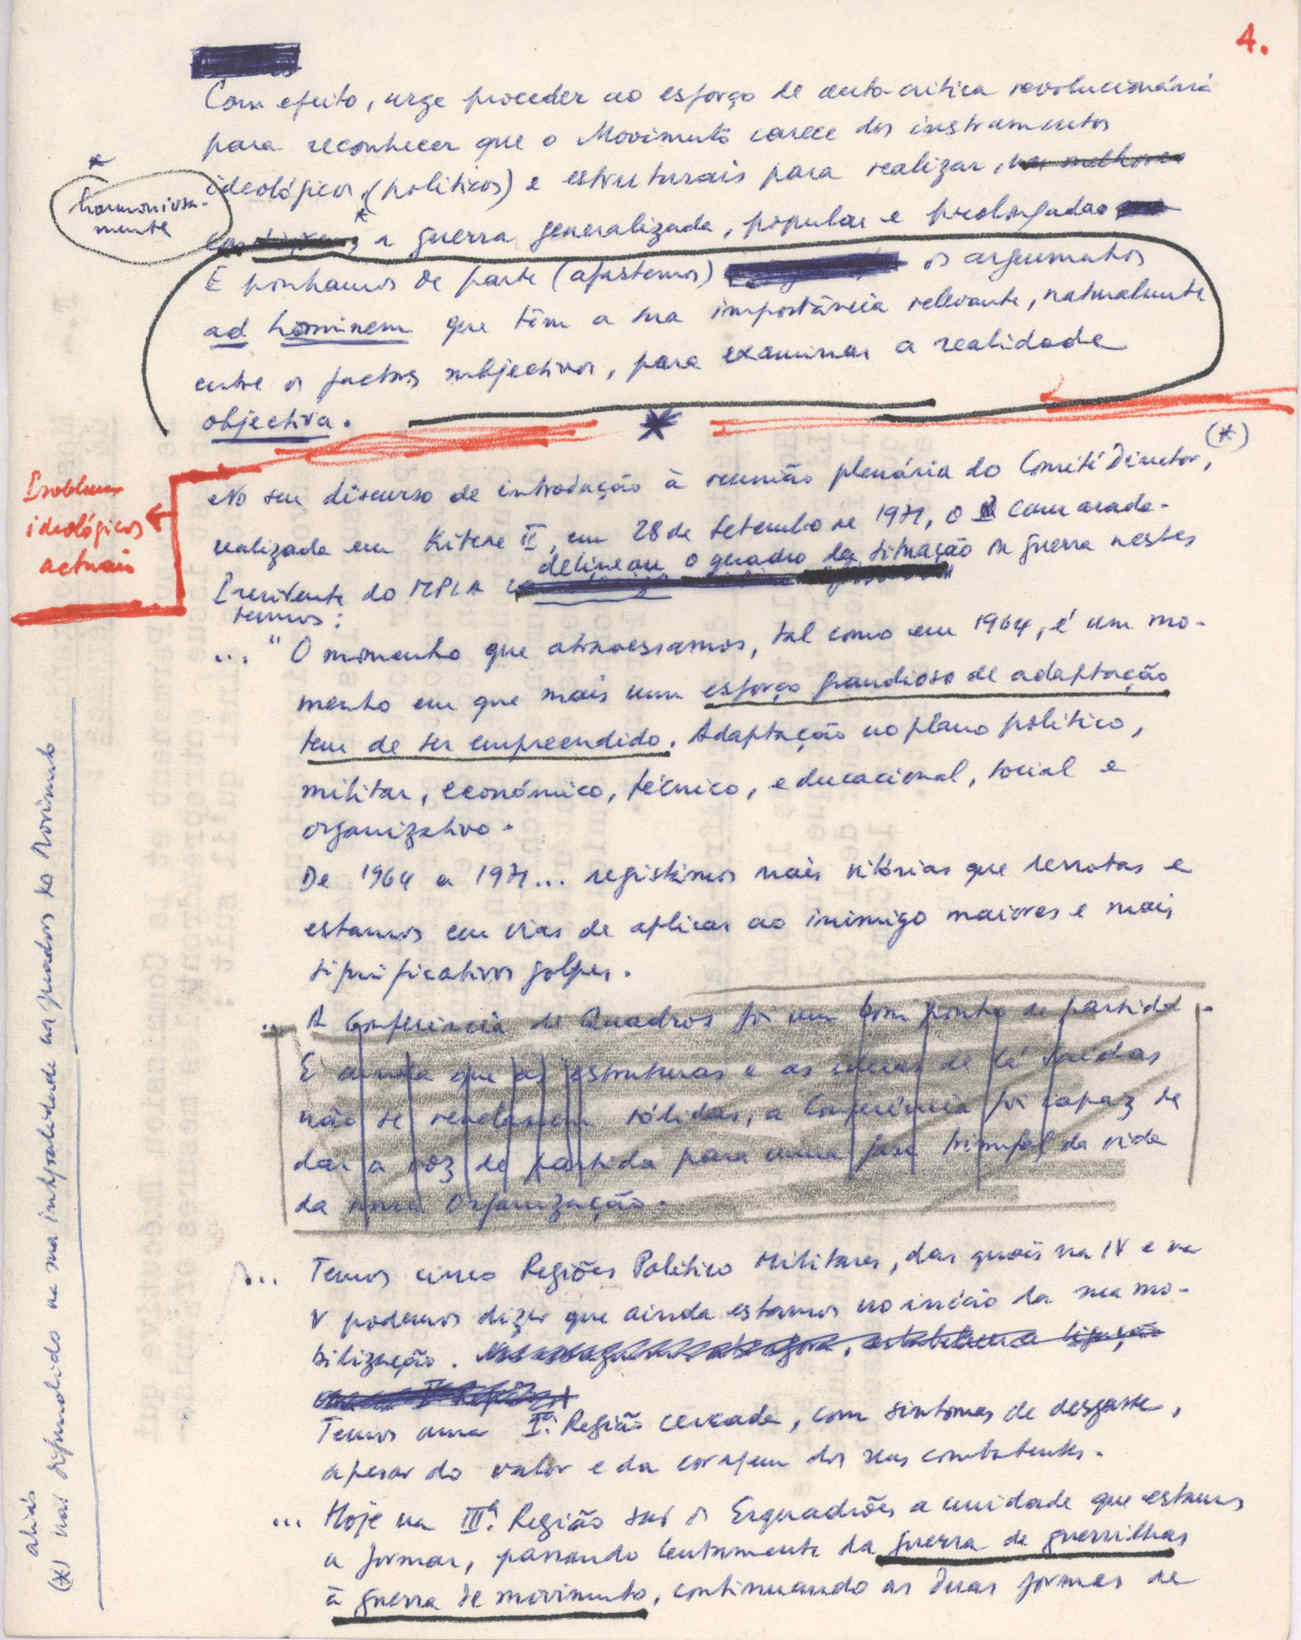 4.
Com efeito, urge proceder ao esforço de auto-critica revolucionária
para reconhecer que o Movimento carece dos instrumentos
ideológicos, (politicos) e estruturais para realizar,
*
harmoniosa-
mente
* a guerra generalizada, popular e prolongada
E ponhamos de parte (afastemos) os argumentos
ad hominem que têm a sua importância relevante, naturalmente
entre os factos subjectivos, para examinar a realidade
objectiva.
*
Problemas
ideológicos
actuais
No seu discurso de introdução à reunião plenária do Comité Director, (*)
realizada em Kitexe II, em 28 de Setembro de 1971, o camarada-
Presidente do MPLA delineou o quadro da situação da guerra nestes
termos:
... "O momento que atravessamos, tal como em 1964, é um mo-
mento em que mais um esforço grandioso de adaptação
tem de ser empreendido. Adaptação no plano politico,
militar, económico, técnico, educacional, social e
organizativo.
De 1964 a 1971... registámos mais vitórias que derrotas e
estamos em vias de aplicar ao inimigo maiores e mais
significativos golpes.
... A Conferência de Quadros foi um bom ponto de partida.
E ainda que as estruturas e as ideias de lá saídas
não se revelassem sólidas, a Conferência foi capaz de
dar a voz de partida para uma fase triunfal da vida
da nossa Organização.
... Temos cinco Regiões Politico Militares, das quais na IV e na
V podemos dizer que ainda estamos no início da sua mo-
bilização.
Temos uma Iª. Região cercada, com sintomas de desgaste,
apesar do valor e da coragem dos seus combatentes.
... Hoje na IIIª. Região são os Esquadrões a unidade que estamos
a formar, passando lentamente da guerra de guerrilhas
à guerra de movimento, continuando as duas formas de
aliás
(*) não difundido na sua integralidade nos quadros do Movimento